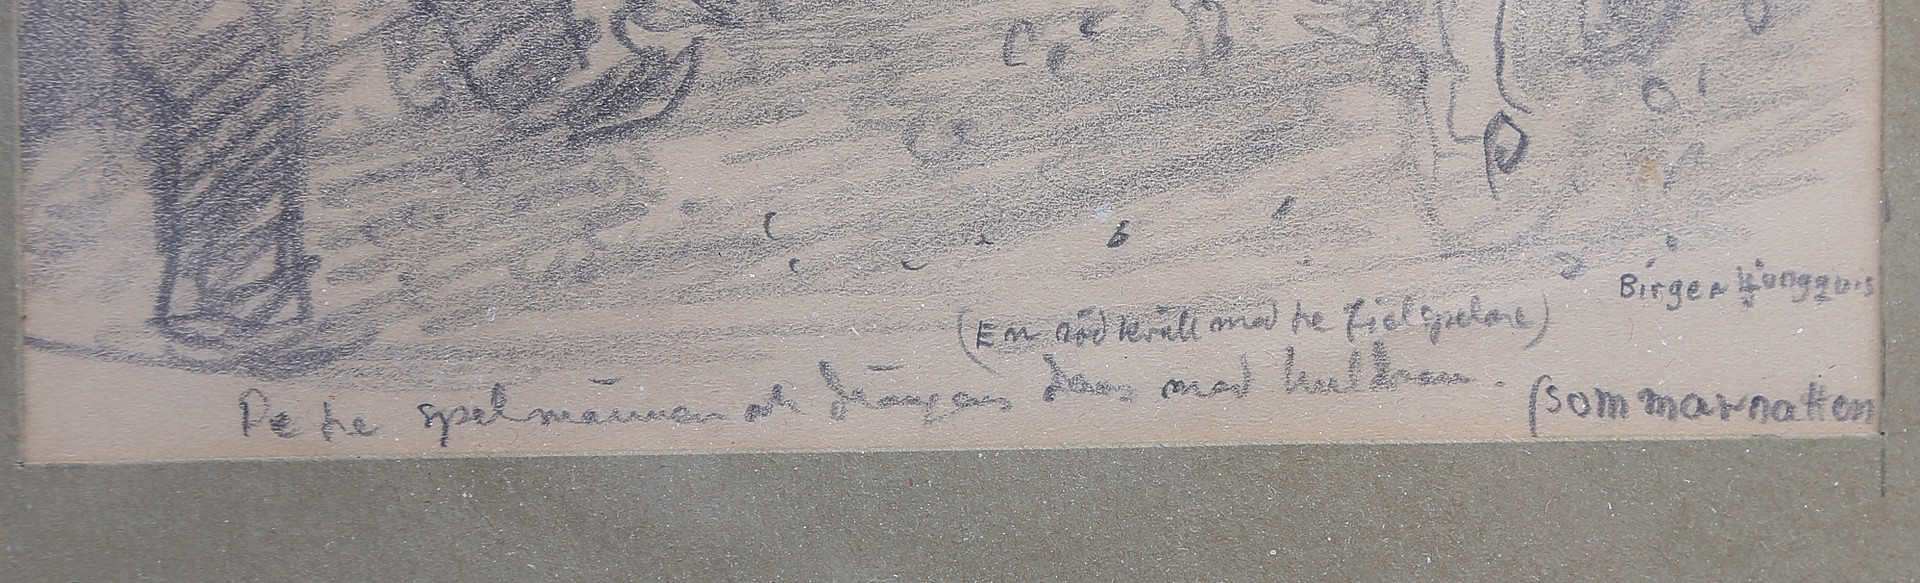 Birger Ljungquis
(En röd kväll med tre fiolspelare)
De tre spelmännen och drängens dans med huldran.
(Sommarnatten